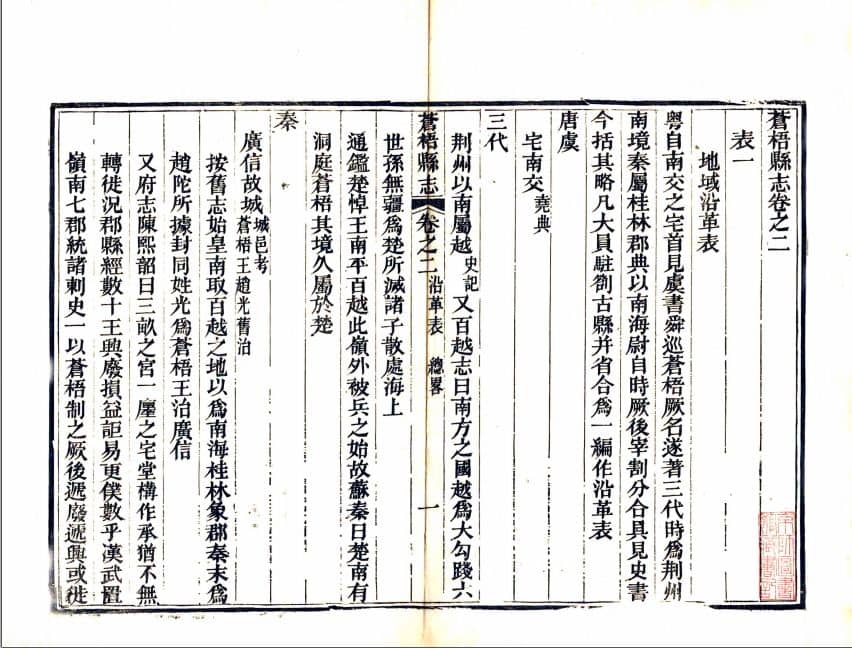 蒼梧縣志卷之二
表一
地域沿革表
粵自南交之宅首見虞書舜巡蒼梧厥名遂著三代時爲荆州
南境秦屬桂林郡典以南海尉自時厥後宰割分合具見史書
今括其略凡大員駐劄古縣并省合爲一編作沿革表
唐虞
宅南交堯典
三代
荆州以南屬越史記又百越志曰南方之國越爲大勾踐六
蒼梧縣志 卷之二 沿革表 總畧 一
世孫無疆爲楚所滅諸子散處海上
通鑑楚悼王南平百越此嶺外被兵之始故蘇秦曰楚南有
洞庭蒼梧其境久屬於楚
秦
廣信故城城邑考
蒼梧王趙光舊治
按舊志始皇南取百越之地以爲南海桂林象郡秦末爲
趙陀所據封同姓光爲蒼梧王治廣信
又府志陳熙韶曰三畝之宮一廛之宅堂構作承猶不無
轉徙況郡縣經數十王興廢損益詎易更僕數乎漢武置
嶺南七郡統諸刺史一以蒼梧制之厥後遞廢遞興或徙